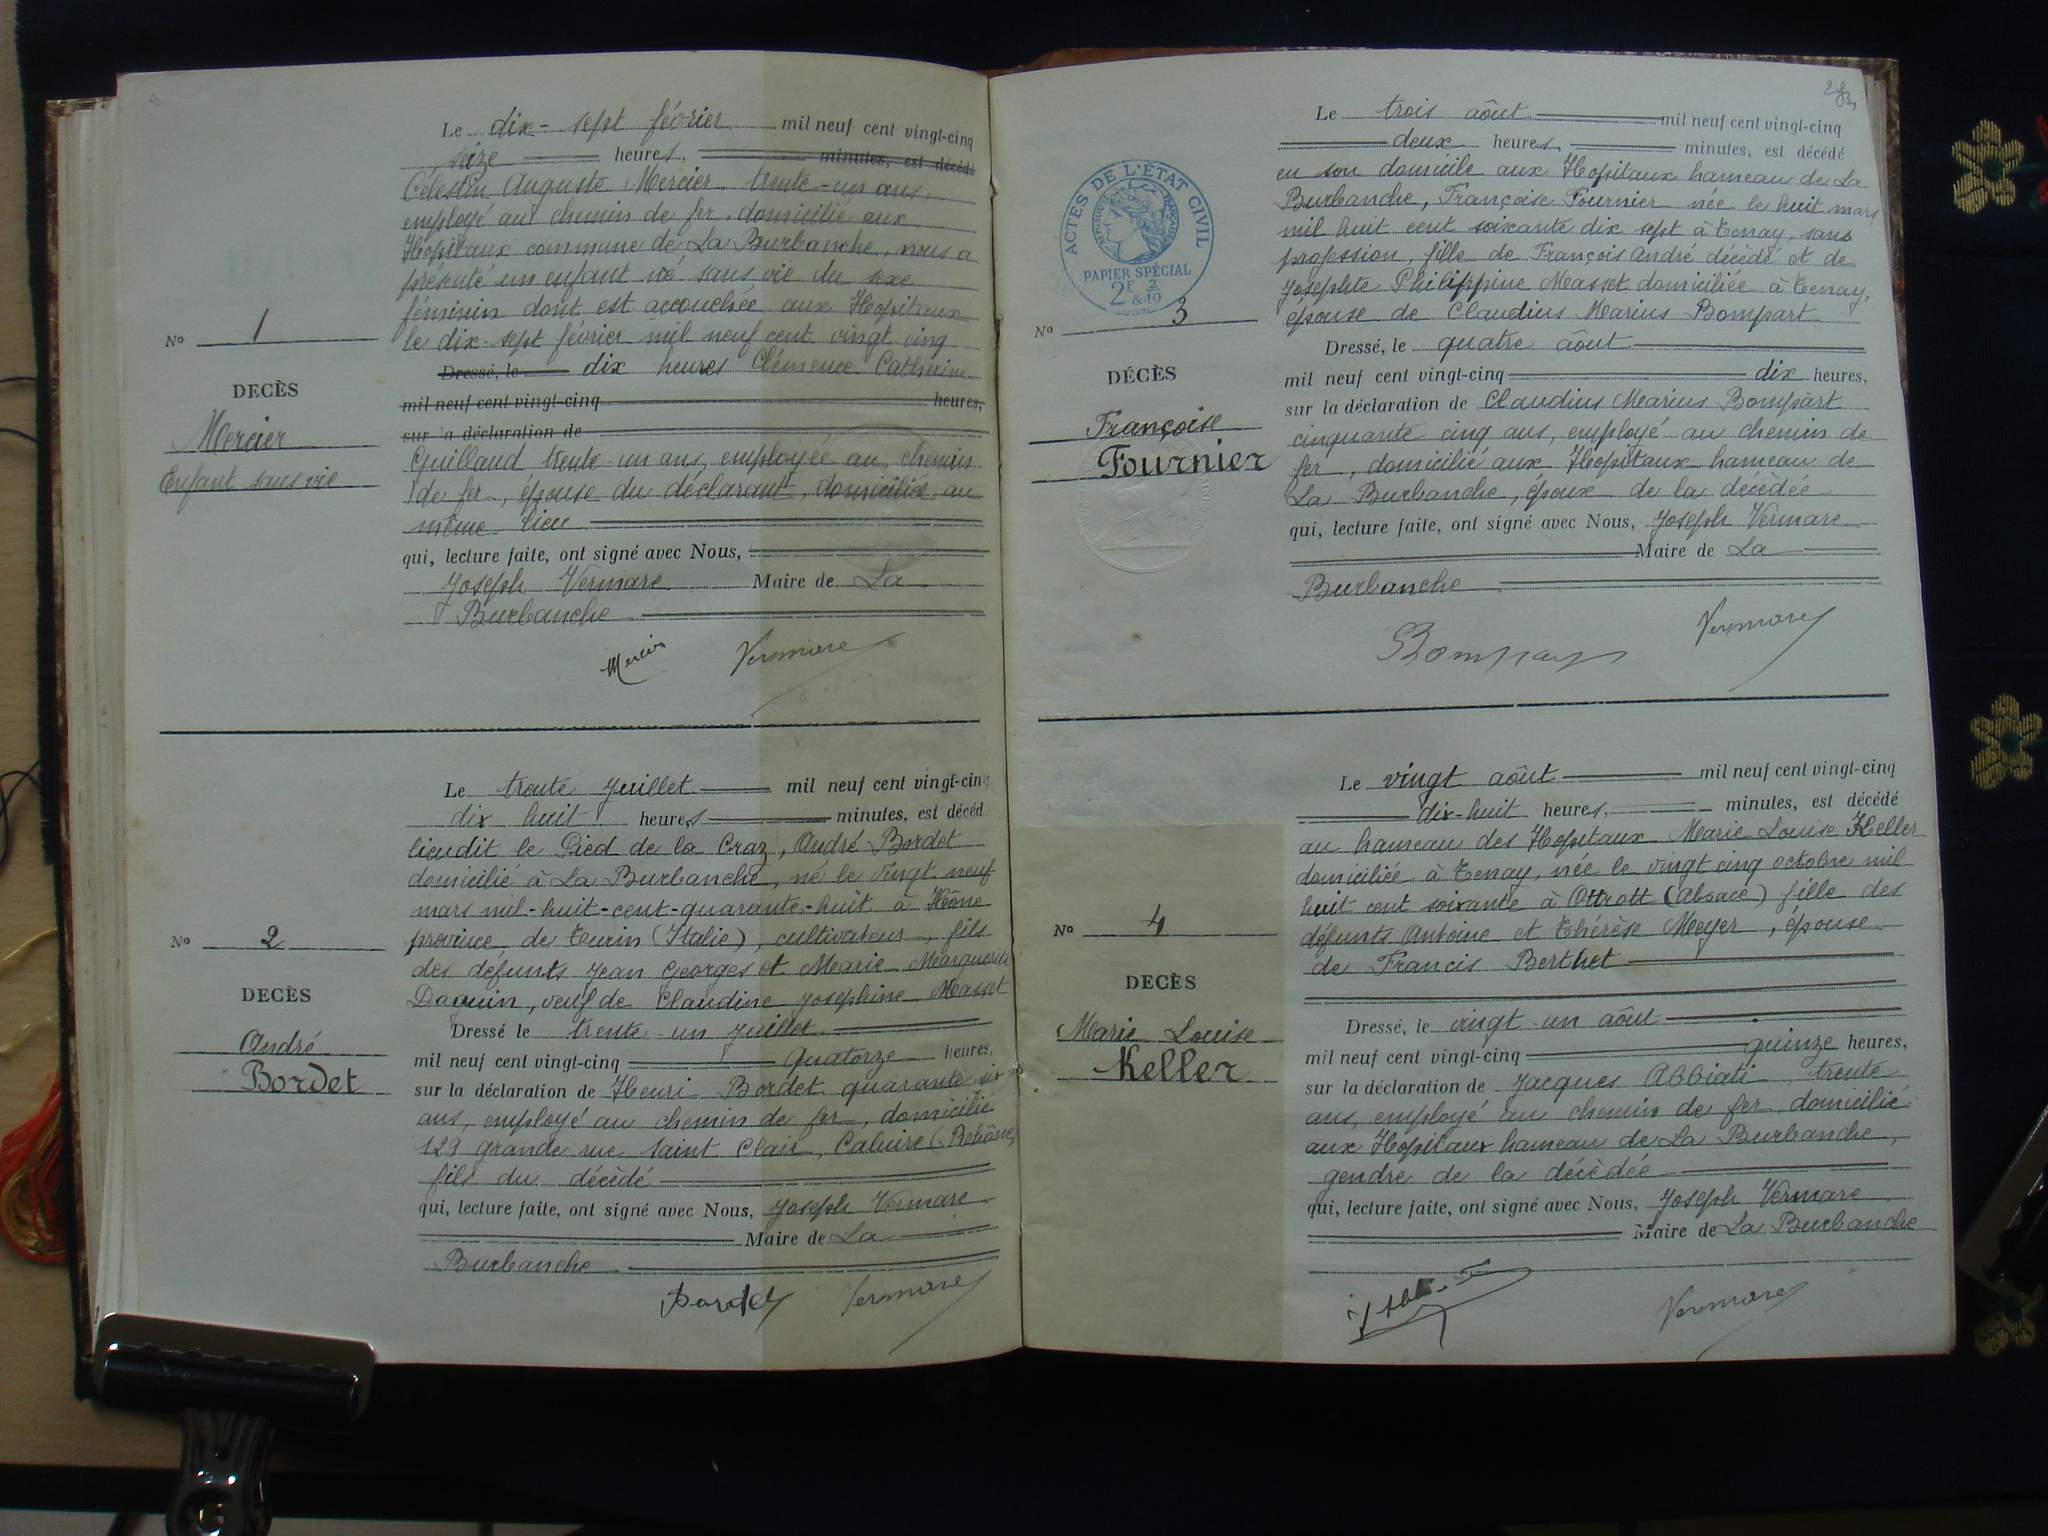 Le dix-sept février mil neuf cent vingt-cinq
seize heures, minutes, est décédé
Célestin Auguste Mercier trente-un ans,
employé au chemin de fer, domicilié aux
Hopitaux commune de La Burbanche, nous a
présenté un enfant né sans vie du sexe
féminin dont est accouchée aux Hopitaux
le dix-sept février mil neuf cent vingt cinq
Dressé, le dix heures Clémence Catherine
mil neuf cent vingt-cinq heures,
sur la déclaration de
Guillaud trente-un ans, employée au chemin
de fer, épouse du déclarant, domiciliée au
même lieu
qui, lecture faite, ont signé avec Nous,
Joseph Vermare Maire de La
Burbanche
Mercier Vermare
No 1
DECÈS
Mercier
Enfant sans vie
Le trente Juillet mil neuf cent vingt-cinq
dix huit heures minutes, est décéd
lieudit le Pied de la Craz, André Bordet
domicilié à La Burbanche, né le vingt neuf
mars mil-huit-cent-quarante-huit à Hône
province de Turin (Italie), cultivateur, fils
des défunts Jean Georges et Marie Marguerite
Daguin, veuf de Claudine Josephine Masset
Dressé le trente-un Juillet
mil neuf cent vingt-cinq Quatorze heures,
sur la déclaration de Henri Bordet quarante six
ans, employé au chemin de fer, domicilié
129 grande rue Saint Clair, Caluire (Rhône)
fils du décédé
qui, lecture faite, ont signé avec Nous, Joseph Vermare
Maire de La
Burbanche
Bordet Vermare
No 2
DECÈS
André
Bordet
283
Le trois aôut mil neuf cent vingt-cinq
deux heures, minutes, est décédé
en son domicile aux Hopitaux hameau de La
Burbanche, Françoise Fournier née le huit mars
mil huit cent soixante dix sept à Tenay, sans
profession, fille de François André décédé et de
Josephte Philippine Masset domiciliée à Tenay,
épouse de Claudius Marius Bompart
Dressé, le quatre aôut
mil neuf cent vingt-cinq dix heures,
sur la déclaration de Claudius Marius Bompart
cinquante cinq ans, employé au chemin de
fer, domicilié aux Hopitaux hameau de
La Burbanche, époux de la décédée
qui, lecture faite, ont signé avec Nous, Joseph Vermare
Maire de La
Burbanche
Bompart Vermare
ACTES DE L'ÉTAT CIVIL
PAPIER SPÉCIAL
2E 2
&10
No 3
DÉCÈS
Françoise
Fournier
Le vingt aôut mil neuf cent vingt-cinq
dix-huit heures, minutes, est décédé
au hameau des Hopitaux Marie Louise Keller
domiciliée à Tenay, née le vingt cinq octobre mil
huit cent soixante à Ottrott (Alsace) fille des
défunts Antoine et Thérèse Meyer, épouse
de Francis Berthet
Dressé, le vingt-un aôut
mil neuf cent vingt-cinq quinze heures,
sur la déclaration de Jacques Abbiati trente
ans, employé au chemin de fer, domicilié
aux Hopitaux hameau de La Burbanche,
gendre de la décédée
qui, lecture faite, ont signé avec Nous, Joseph Vermare
Maire de La Burbanche
Vermare
No 4
DECÈS
Marie Louise
Keller